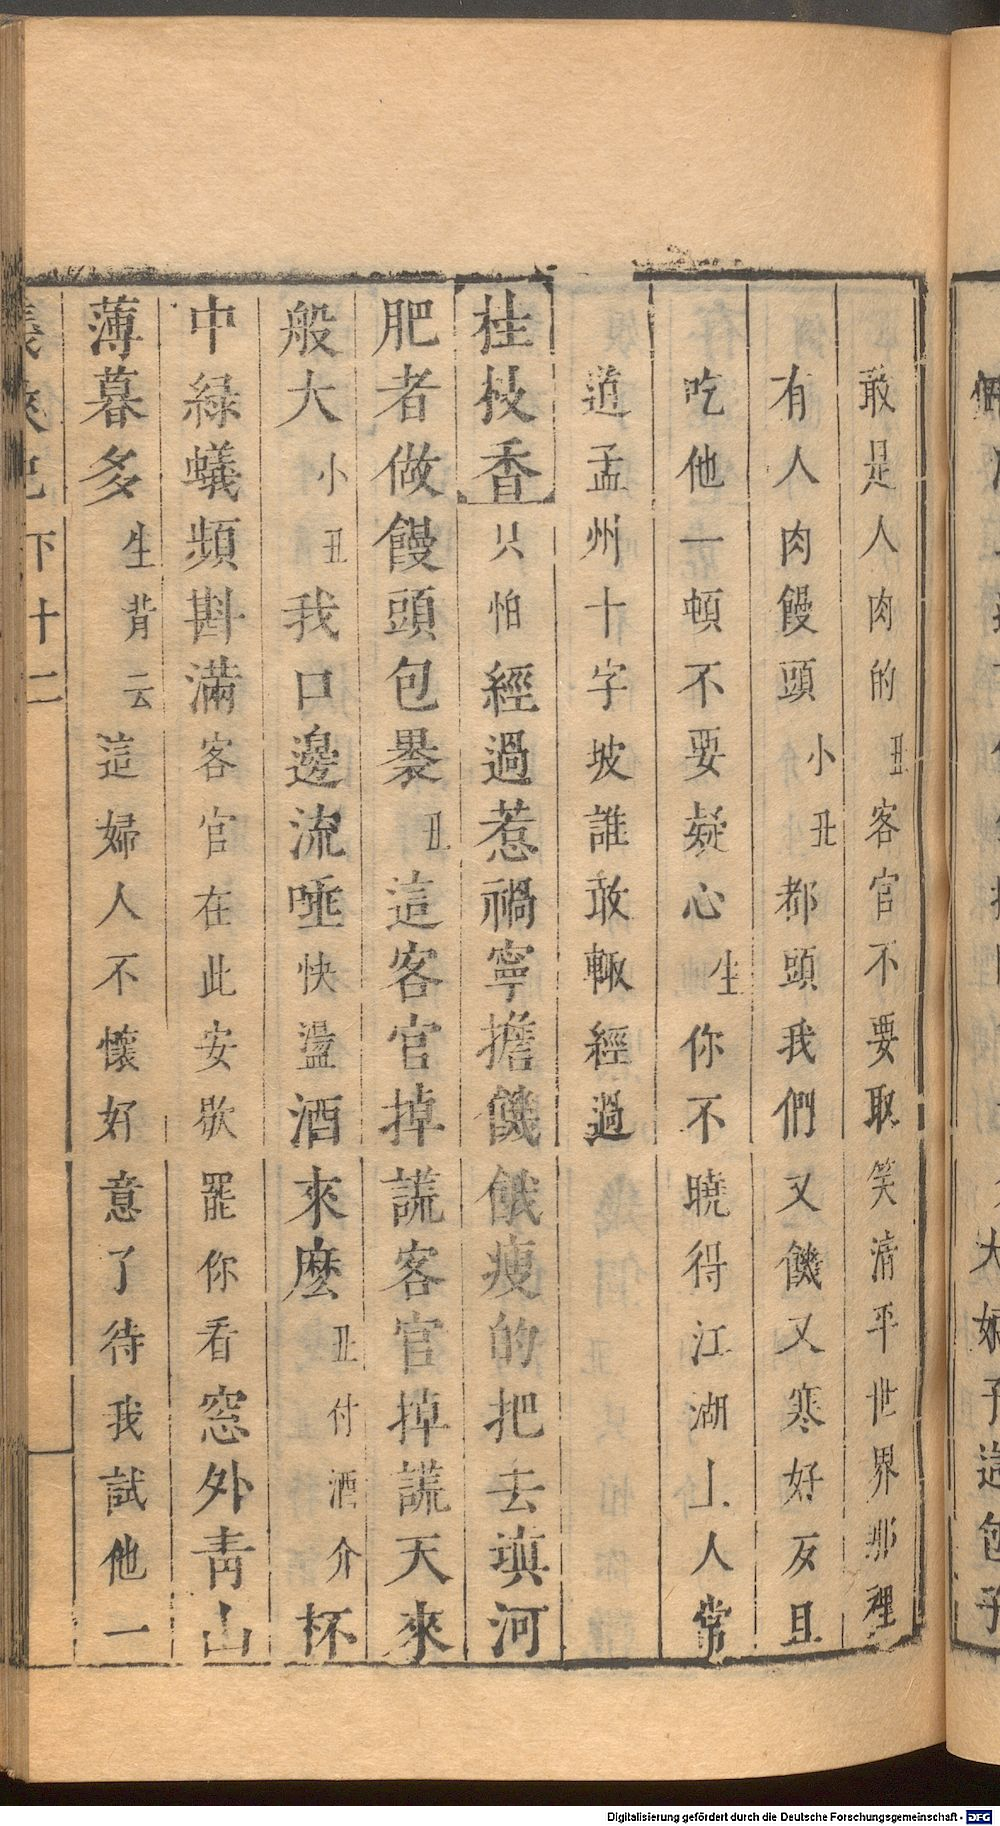 敢是人肉的丑客官不要取笑清平世界那裡
有人肉饅頭小丑都頭我們又饑又寒好歹且
吃他一頓不要疑心生你不曉得江湖上人常
道孟州十字坡誰敢輙經過
桂枝香只怕經過惹禍寧擔饑餓瘦的把去填河
肥者做饅頭包裹丑這客官掉謊客官掉謊天來
般大小丑我口邊流唾快盪酒來麽丑付酒介杯
中緑蟻頻斟滿客官在此安歇罷你看窓外靑山
薄暮多生背云這婦人不懷好意了待我試他一
義俠記 下 十二
大娘子這包子
Digitalisierung gefördert durch die Deutsche Forschungsgemeinschaft - DFG